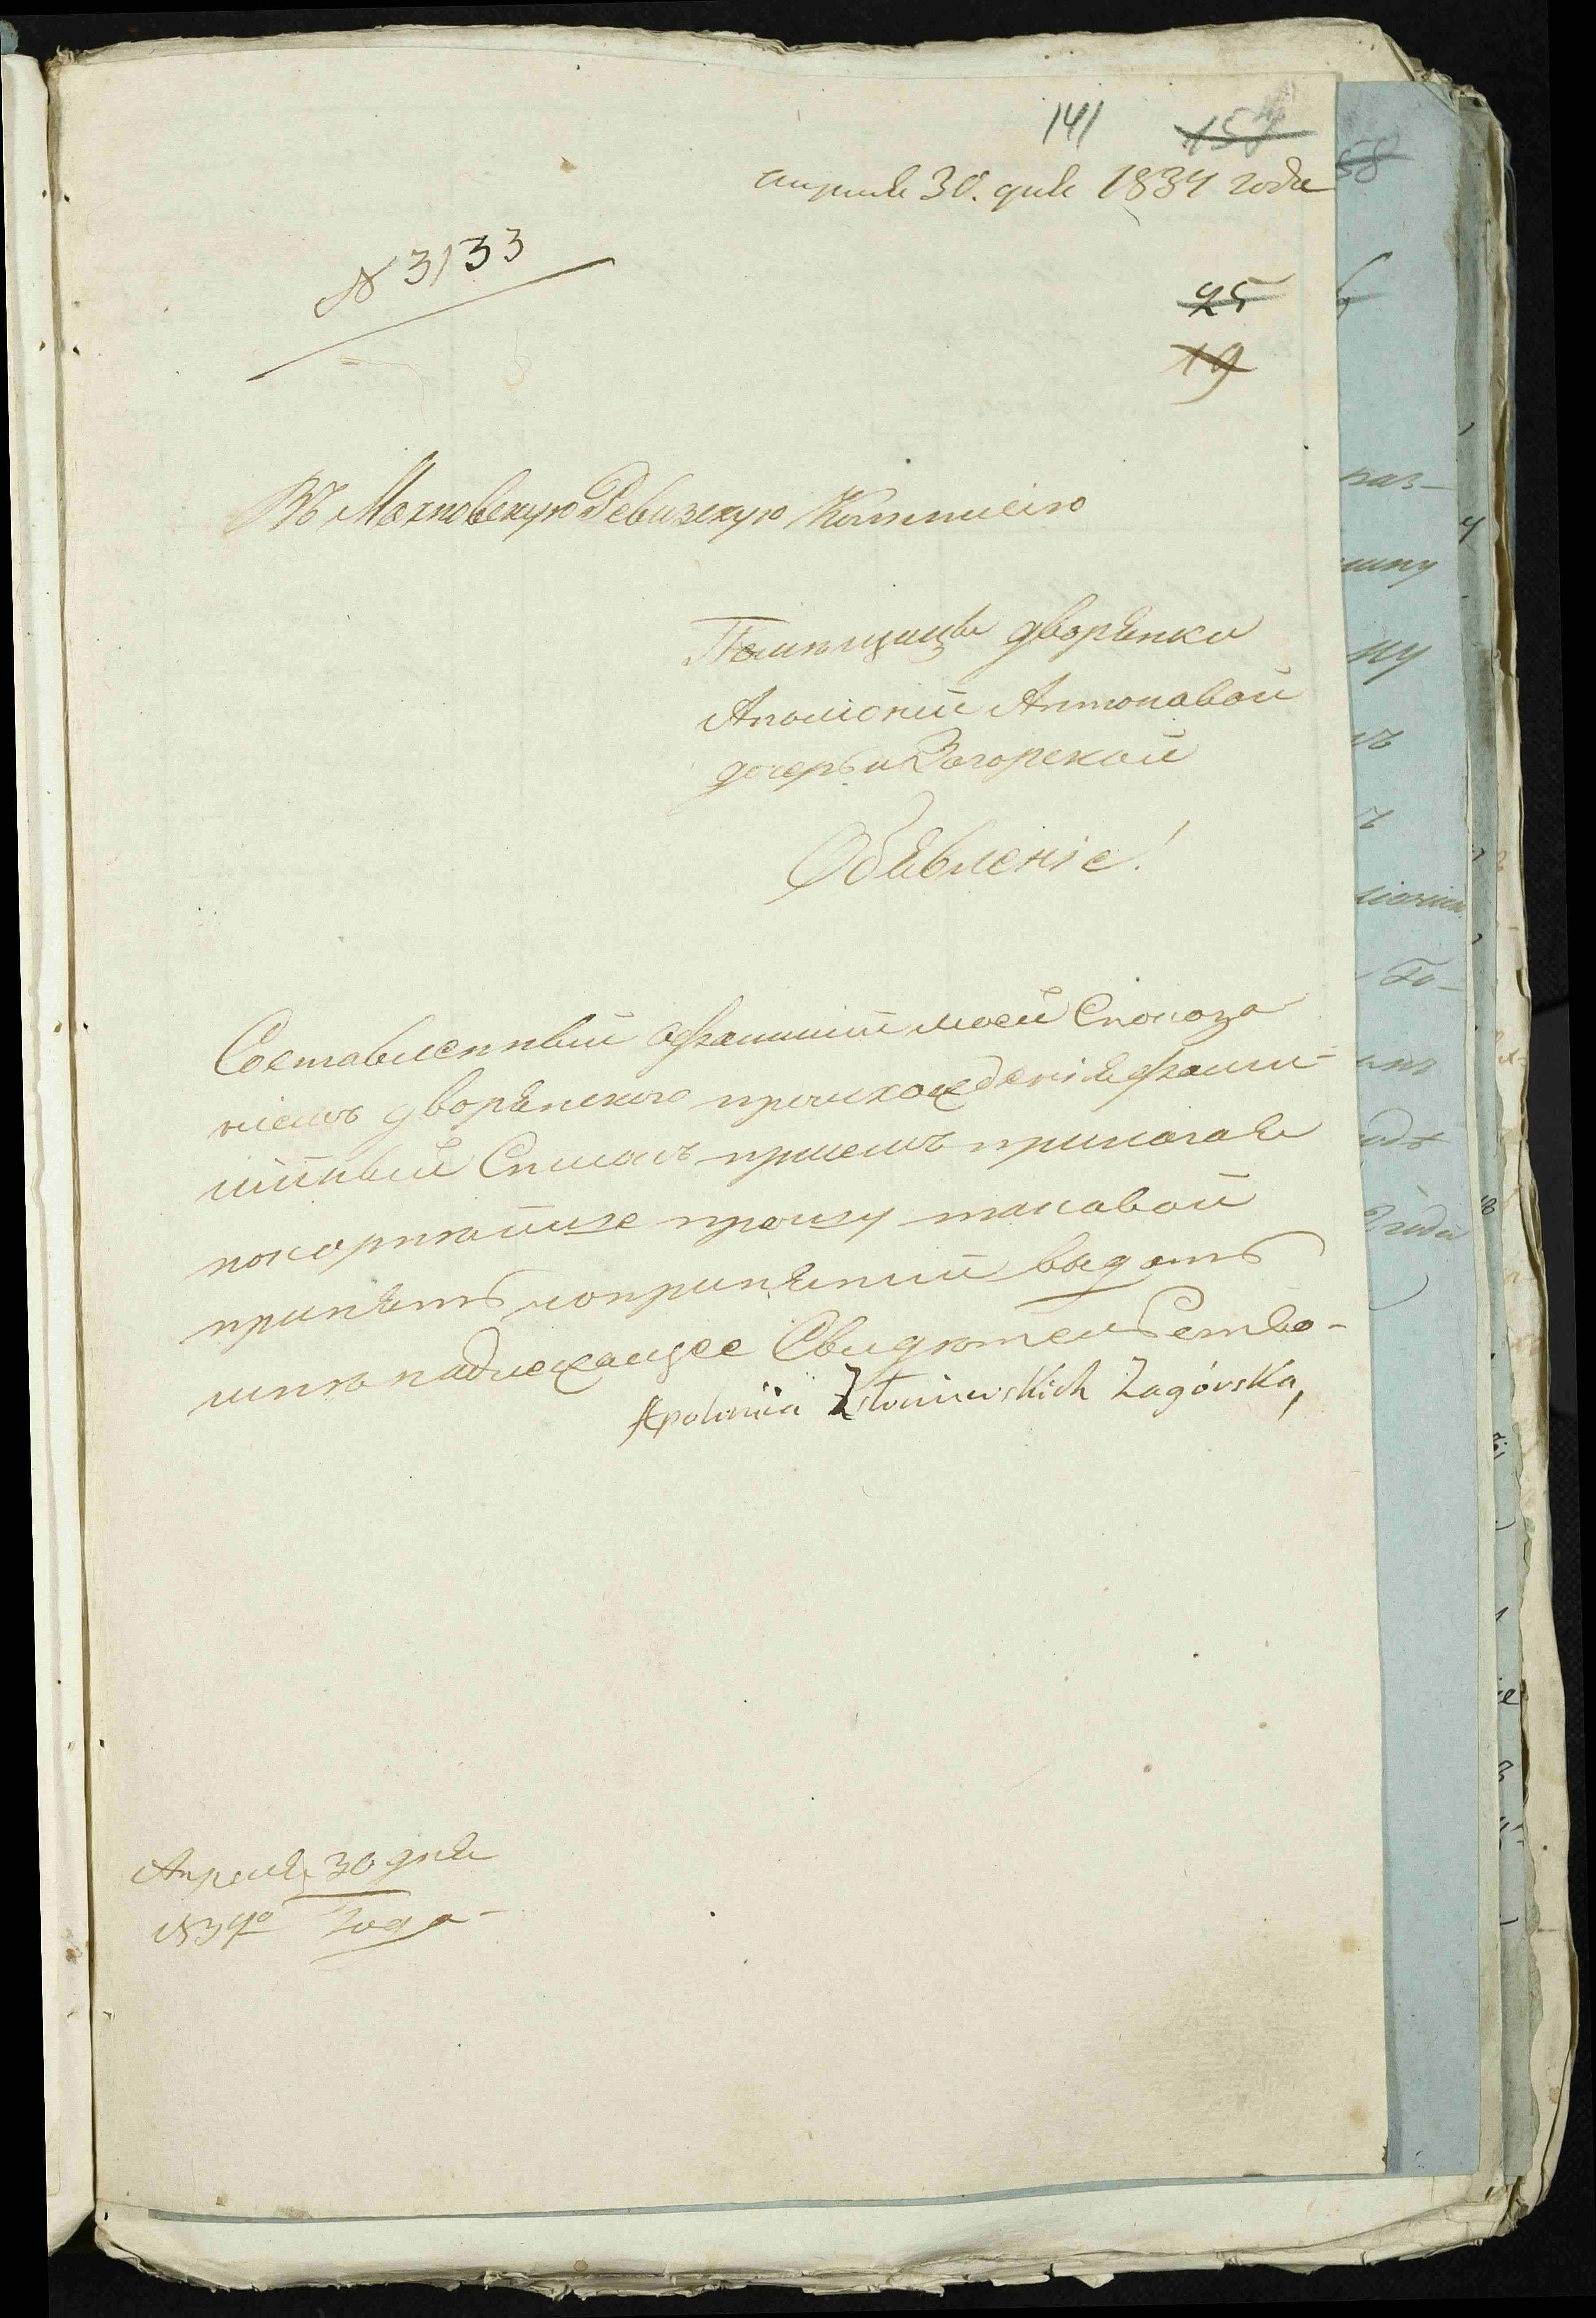 141 157
апреля 30. дня 1834 года
№ 3133
25
19
Въ Махновскую Ревизскую Коммисію
Помѣщицы дворянки
Аполіоніи Антоновой
дочери Загорской
Объявленіе!
Составленный офамиліи моей Споказа
ніемъ дворянского происхожденія фами-
лійный Списокъ присемъ прилагая
покорнѣйше прошу таковой
принять ипринятіи выдать
мнѣ надлежащее Свидѣтельство-
Apolonija Zsłoniewskich Zagórska,
Апреля 30 дня
1834го Года-
58